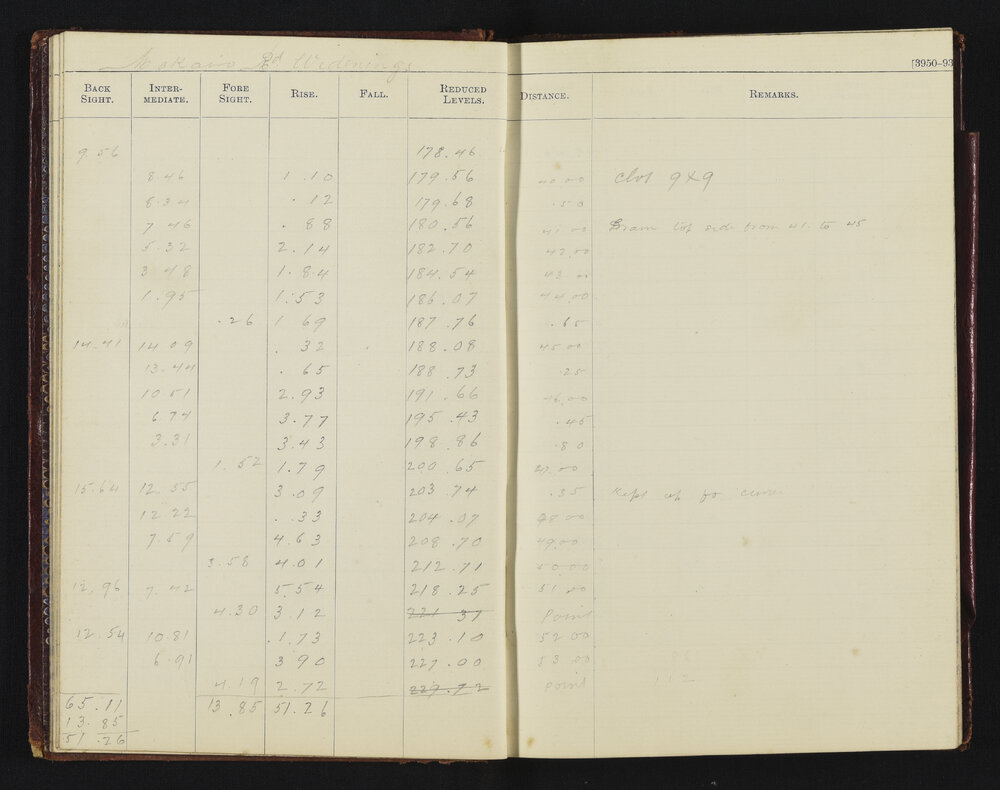 Mokairo Rd Widenings
[3950-93
BACK SIGHT. INTER-MEDIATE. FORE SIGHT. RISE. FALL. REDUCED LEVELS. DISTANCE. REMARKS.
9.56 178.46
8.46 1.10 179.56 40.00 Clvt 9x9
8.34 .12 179.68 .50
7.46 .88 180.56 41.00 Drain top side from 41. to 45
5.32 2.14 182.70 42.00
3.48 1.84 184.54 43.00
1.95 1.53 186.07 44.00
.26 1.69 187.76 .65
14.41 14.09 .32 188.08 45.00
13.44 .65 188.73 .25
10.51 2.93 191.66 46.00
6.74 3.77 195.43 .45
3.31 3.43 198.86 .80
1.52 1.79 200.65 47.00
15.64 12.55 3.09 203.74 .35 Kept up for curve
12.22 .33 204.07 48.00
7.59 4.63 208.70 49.00
3.58 4.01 212.71 50.00
12.96 7.42 5.54 218.25 51.00
4.30 3.12 221.37 Point
12.54 10.81 1.73 223.10 52.00
6.91 3.90 227.00 53.00
4.19 2.72 229.72 Point 112
65.11 13.85 51.26
13.85
51.26